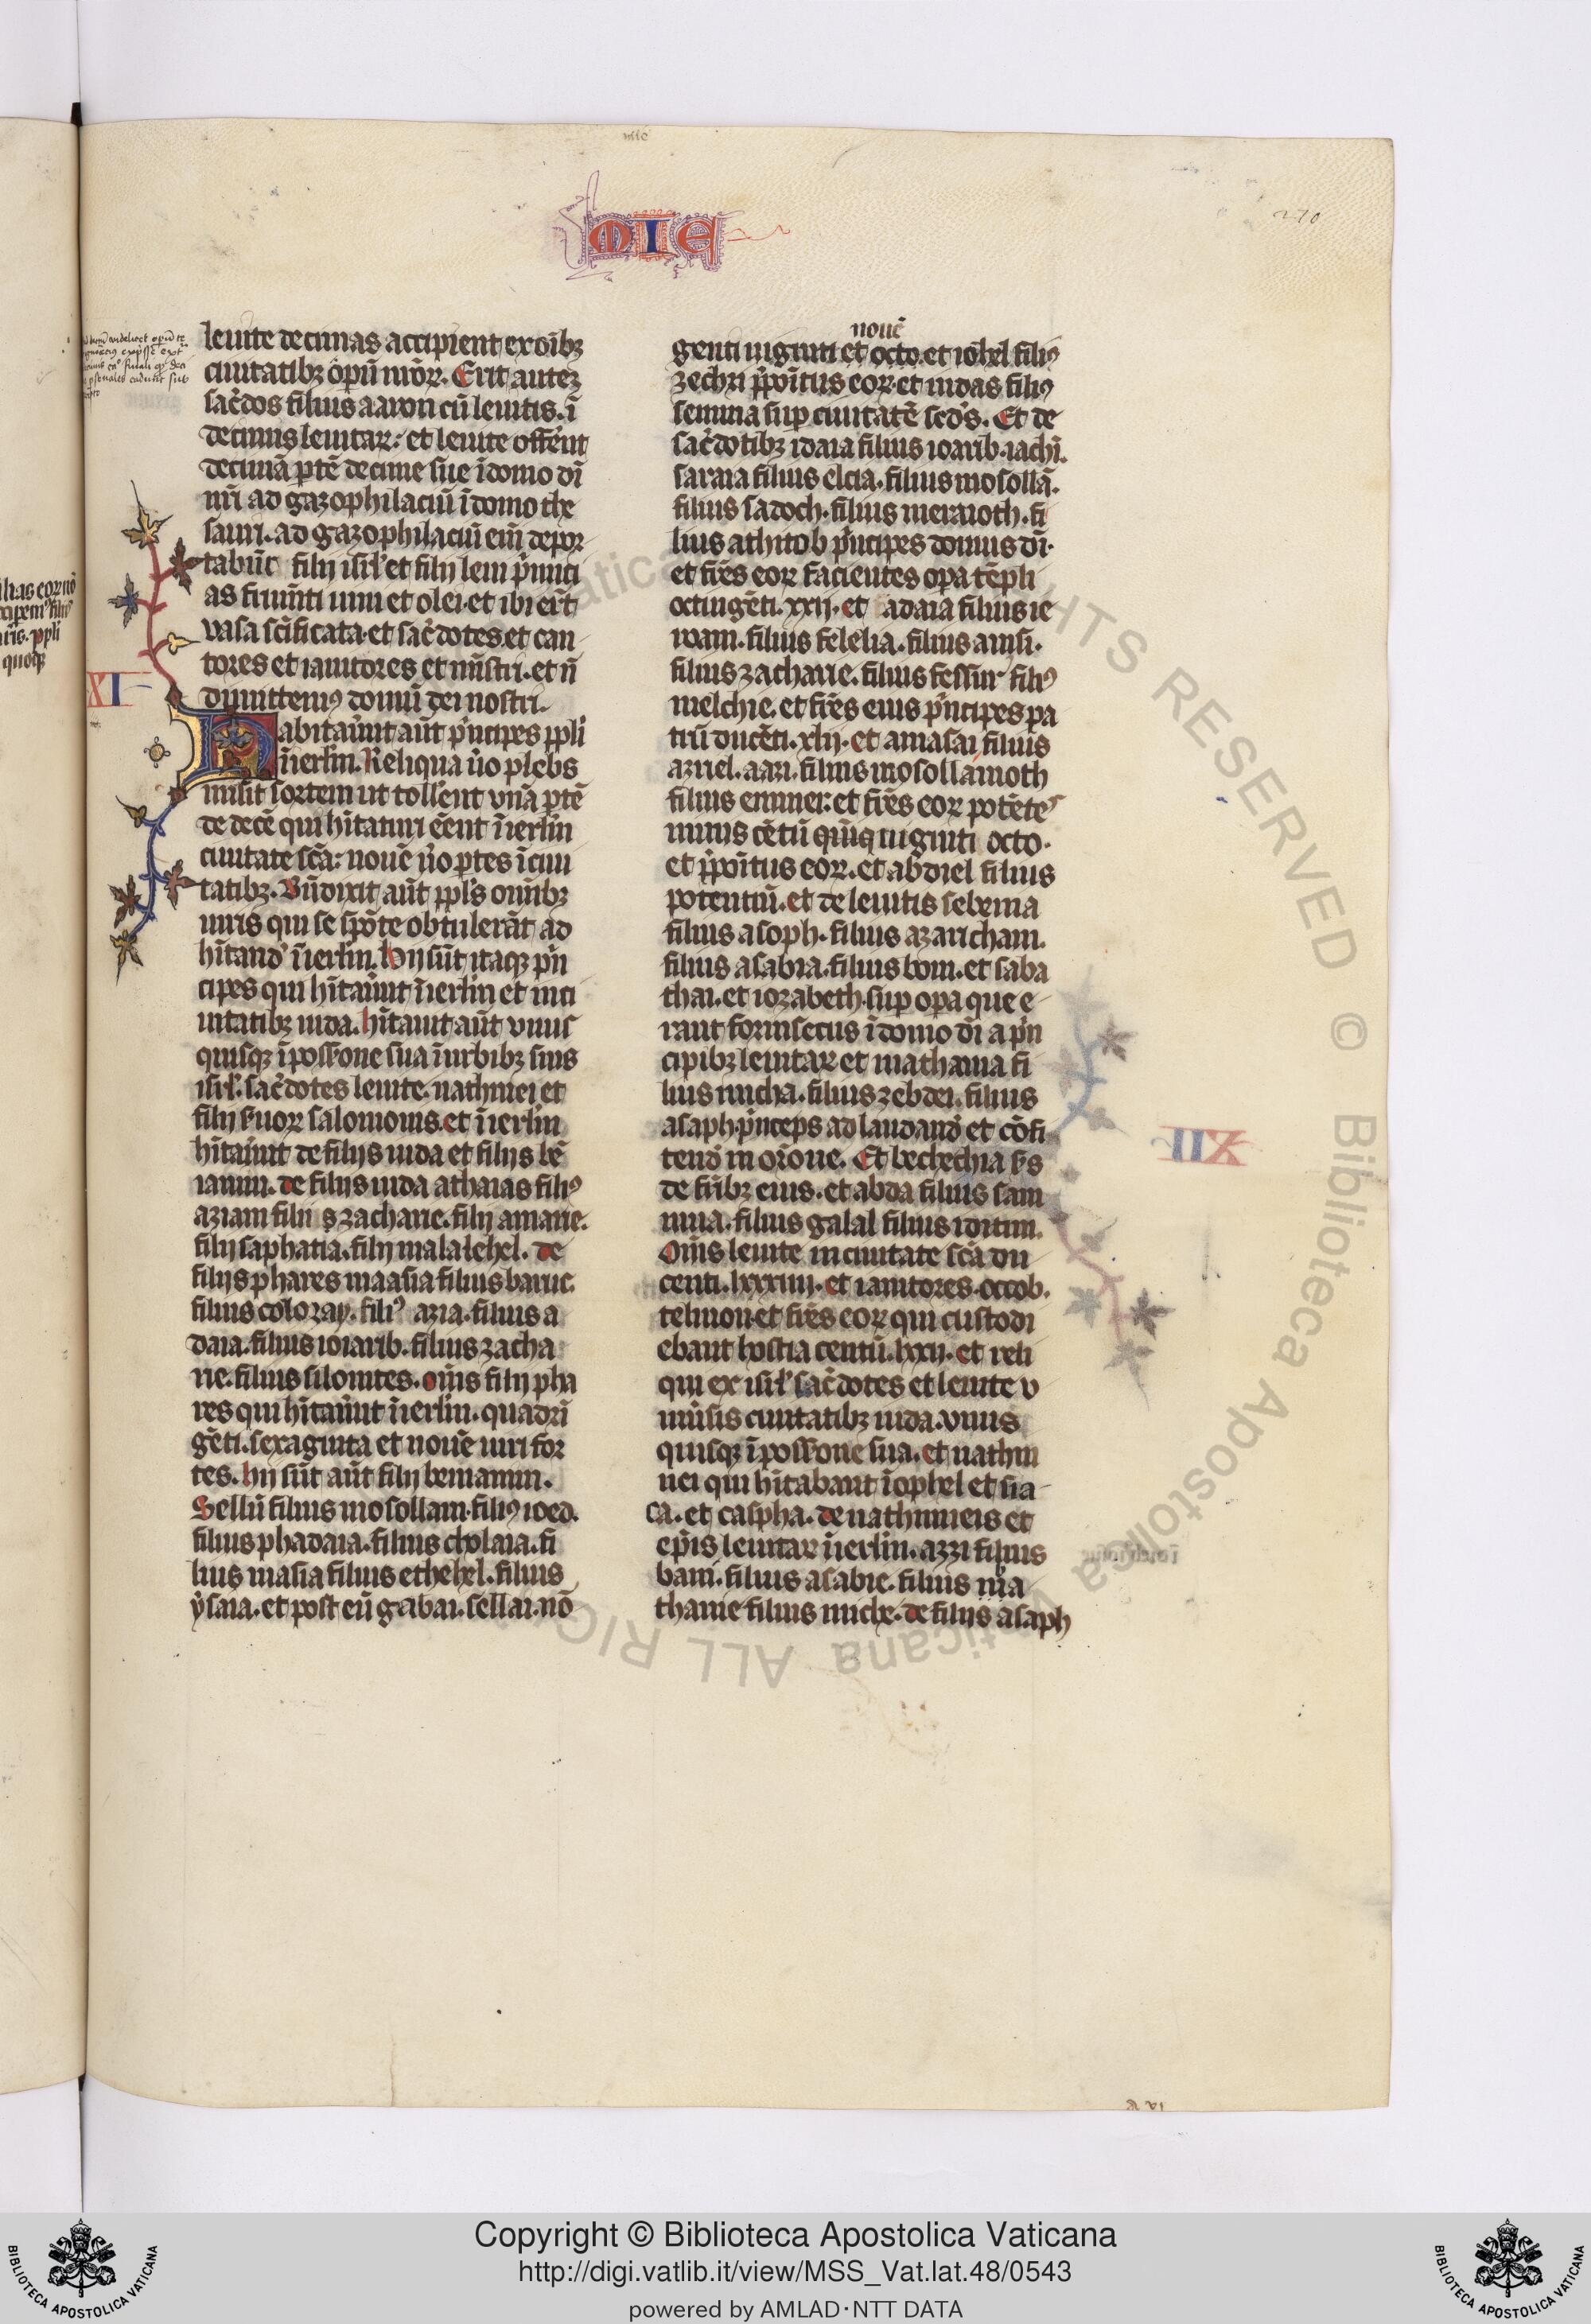 MIE
270
leuite decimas accipient ex oībꝫ
ciuitatibꝫ opū nr̄oꝝ. Erit auteꝫ
sac̄dos filius aaron cū leuitis. ī
decimis leuitaꝝ: et leuite offer̄nt
decimā ꝑtē decime sue ī domo dī
nr̄i ad gazophilaciū ī domo the
sauri. ad gazophilaciū eīm depor
tabūt filij isrl̄ et filij leui p̄mici
as frum̄ti uini et olei. et ibi er̄t
vasa sc̄ificata. et sac̄dotes. et can
tores et ianitores et mīstri. et n̄
dimittemꝰ domū dei nostri.
XI
Habitaūnt aūt p̄ncipes ppl̄i
ī ierl̄m. Reliqua ūo plebs
misit sortem ut toll'ent vnā ꝑtē
de decē qui hītaturi eēnt ī ierl̄m
ciuitate sc̄a: nouē ūo ꝑtes ī ciui
tatibꝫ. Bn̄dixit aūt ppl's omībꝫ
uiris qui se spōte obtulerāt ad
hītand' ī ierl̄m. hij sūt itaqꝫ p̄n
cipes qui hītaūnt ī ierl̄m et in ci
uitatibꝫ iuda. hītauit aūt vnus
quisqꝫ ī poss̄one sua ī urbibꝫ suis
isrl̄. sac̄dotes leuite. nathinei et
filij s̄uoꝝ salomonis. et ī ierl̄m
hītaūnt de filijs iuda et filijs bē
iamin. de filijs iuda athaias filiꝰ
aziam filij s zacharie. filij amarie.
filij saphatia. filij malalehel. de
filijs phares maasia filius baruc.
filius coloray. filiꝰ azia. filius a
daia. filius ioiarib. filius zacha
rie. filius silonites. oīnis filij pha
res qui hītaūnt ī ierl̄m. quadrī
gēti. sexaginta et nouē uiri for
tes. hij sūt aūt filij beniamin.
Sellū filius mosollam. filiꝰ ioed.
filius phadaia. filius cholaia. fi
lius masia filius ethehel. filius
ẏsaia. et post eū gabai. sellai. nō
nouē
genti uiginti et octo. et iohel filiꝰ
zechri p̄poītus eoꝝ. et iudas filiꝰ
semina sup ciuitatē scd's. Et de
sac̄dotibꝫ idaia filius ioarib. iachī.
saraia filius elcia. filius mosollā.
filius sadoch. filius meraioth. fi
lius athitob p̄ncipes domus dī.
et fr̄es eoꝝ facientes opa tēpli
octingēti. xxij. et adaia filius ie
roam. filius felelia. filius amsi.
filius zacharie. filius fessur filiꝰ
melchie. et fr̄es eius p̄ncipes pa
trū ducēti. xlij. et amasai filius
azriel. aazi. filius mosollamoth
filius emmer: et fr̄es eoꝝ potētes
nimis cētū qīnq uiginti octo.
et p̄poītus eoꝝ. et abdiel filius
potentiū. et de leuitis sebenia
filius asoph. filius azaricham.
filius asabia. filius boni. et saba
thai. et iozabeth. sup opa que e
rant forinsecus ī domo dī a p̄n
cipibꝫ leuitaꝝ et mathania fi
lius micha. filius zebdei. filius
asaph. p̄nceps ad laudand' et cōfi
tend' in or̄one. Et bechechia s̄s
de fr̄ibꝫ eius. et abda filius sam
mua. filius galal filius iditun.
Oīnis leuite in ciuitate sc̄a du
centi. lxxxiiij. et ianitores. occob.
telmon. et fr̄es eoꝝ qui custodi
ebant hostia centū. lxxij. et reli
qui ex isrl̄ sac̄dotes et leuite v
niūsis ciuitatibꝫ iuda. vnus
quisqꝫ ī poss̄one sua. et nathin
nei qui hītabant ī ophel et sia
ca. et caspha. de nathinneis et
ep̄is leuitaꝝ ī ierl̄m. azzi filius
bani. filius asabie. filius ma
thanie filius miche. de filijs asaph
Copyright © Biblioteca Apostolica Vaticana
http://digi.vatlib.it/view/MSS_Vat.lat.48/0543
powered by AMLAD·NTT DATA
BIBLIOTECA APOSTOLICA VATICANA
BIBLIOTECA APOSTOLICA VATICANA